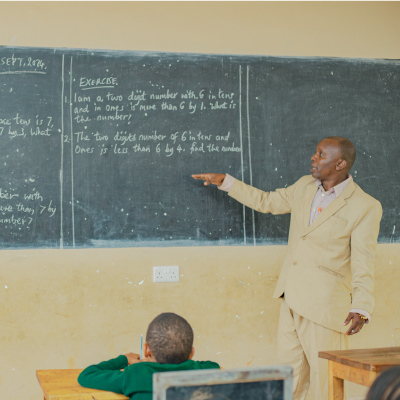 SEPT, 2024.
tens is 7,
7 by 1, what
with
than, 7 by
number?
EXERCISE.
1. I am a two digit number with 6 in tens
and in ones is more than 6 by 1. What is
the number?
2. The two digits number of 6 in tens and
Ones is less than 6 by 4. find the number